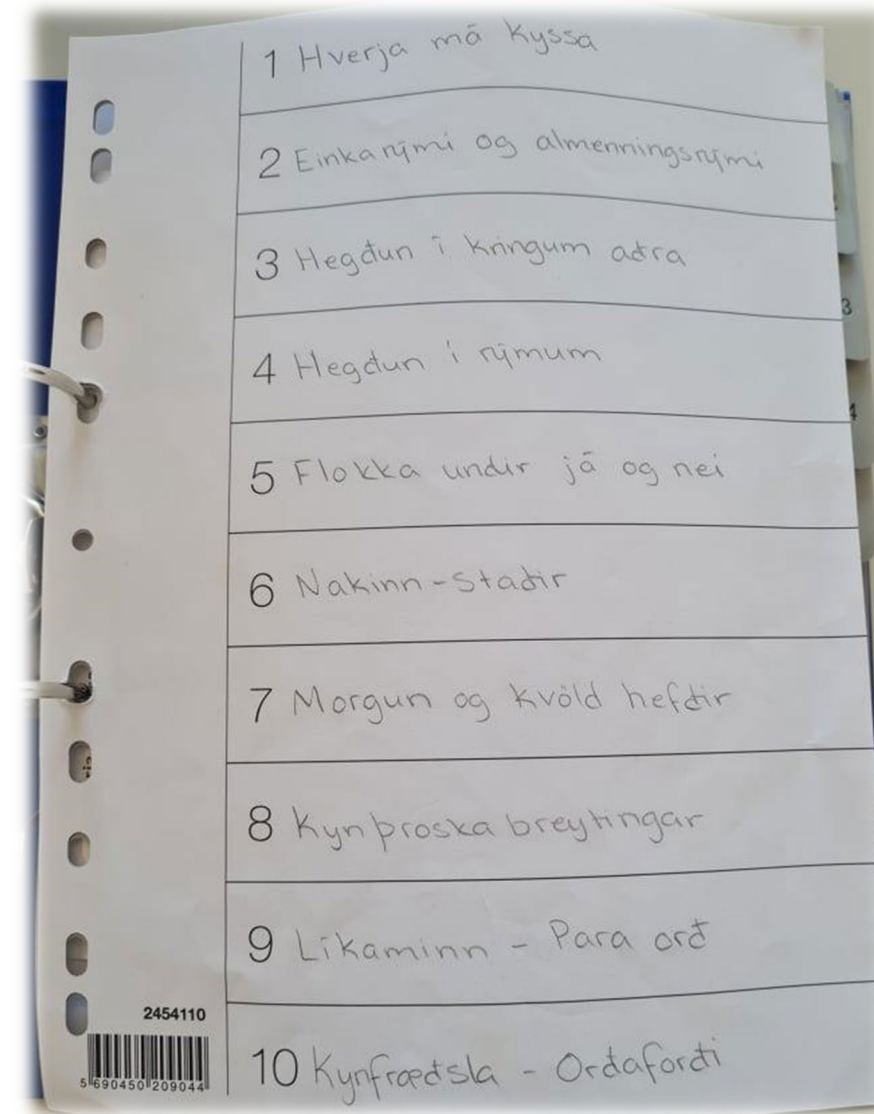 1 Hverja má kyssa
2 Einkarými og almenningsrými
3 Hegðun í kringum aðra
4 Hegðun í rýmum
5 Flokka undir já og nei
6 Nakinn - Staðir
7 Morgun og kvöld hefðir
8 Kynþroska breytingar
9 Líkaminn - Para orð
2454110
5 690450 209044
10 Kynfræðsla - Orðaforði
3
4